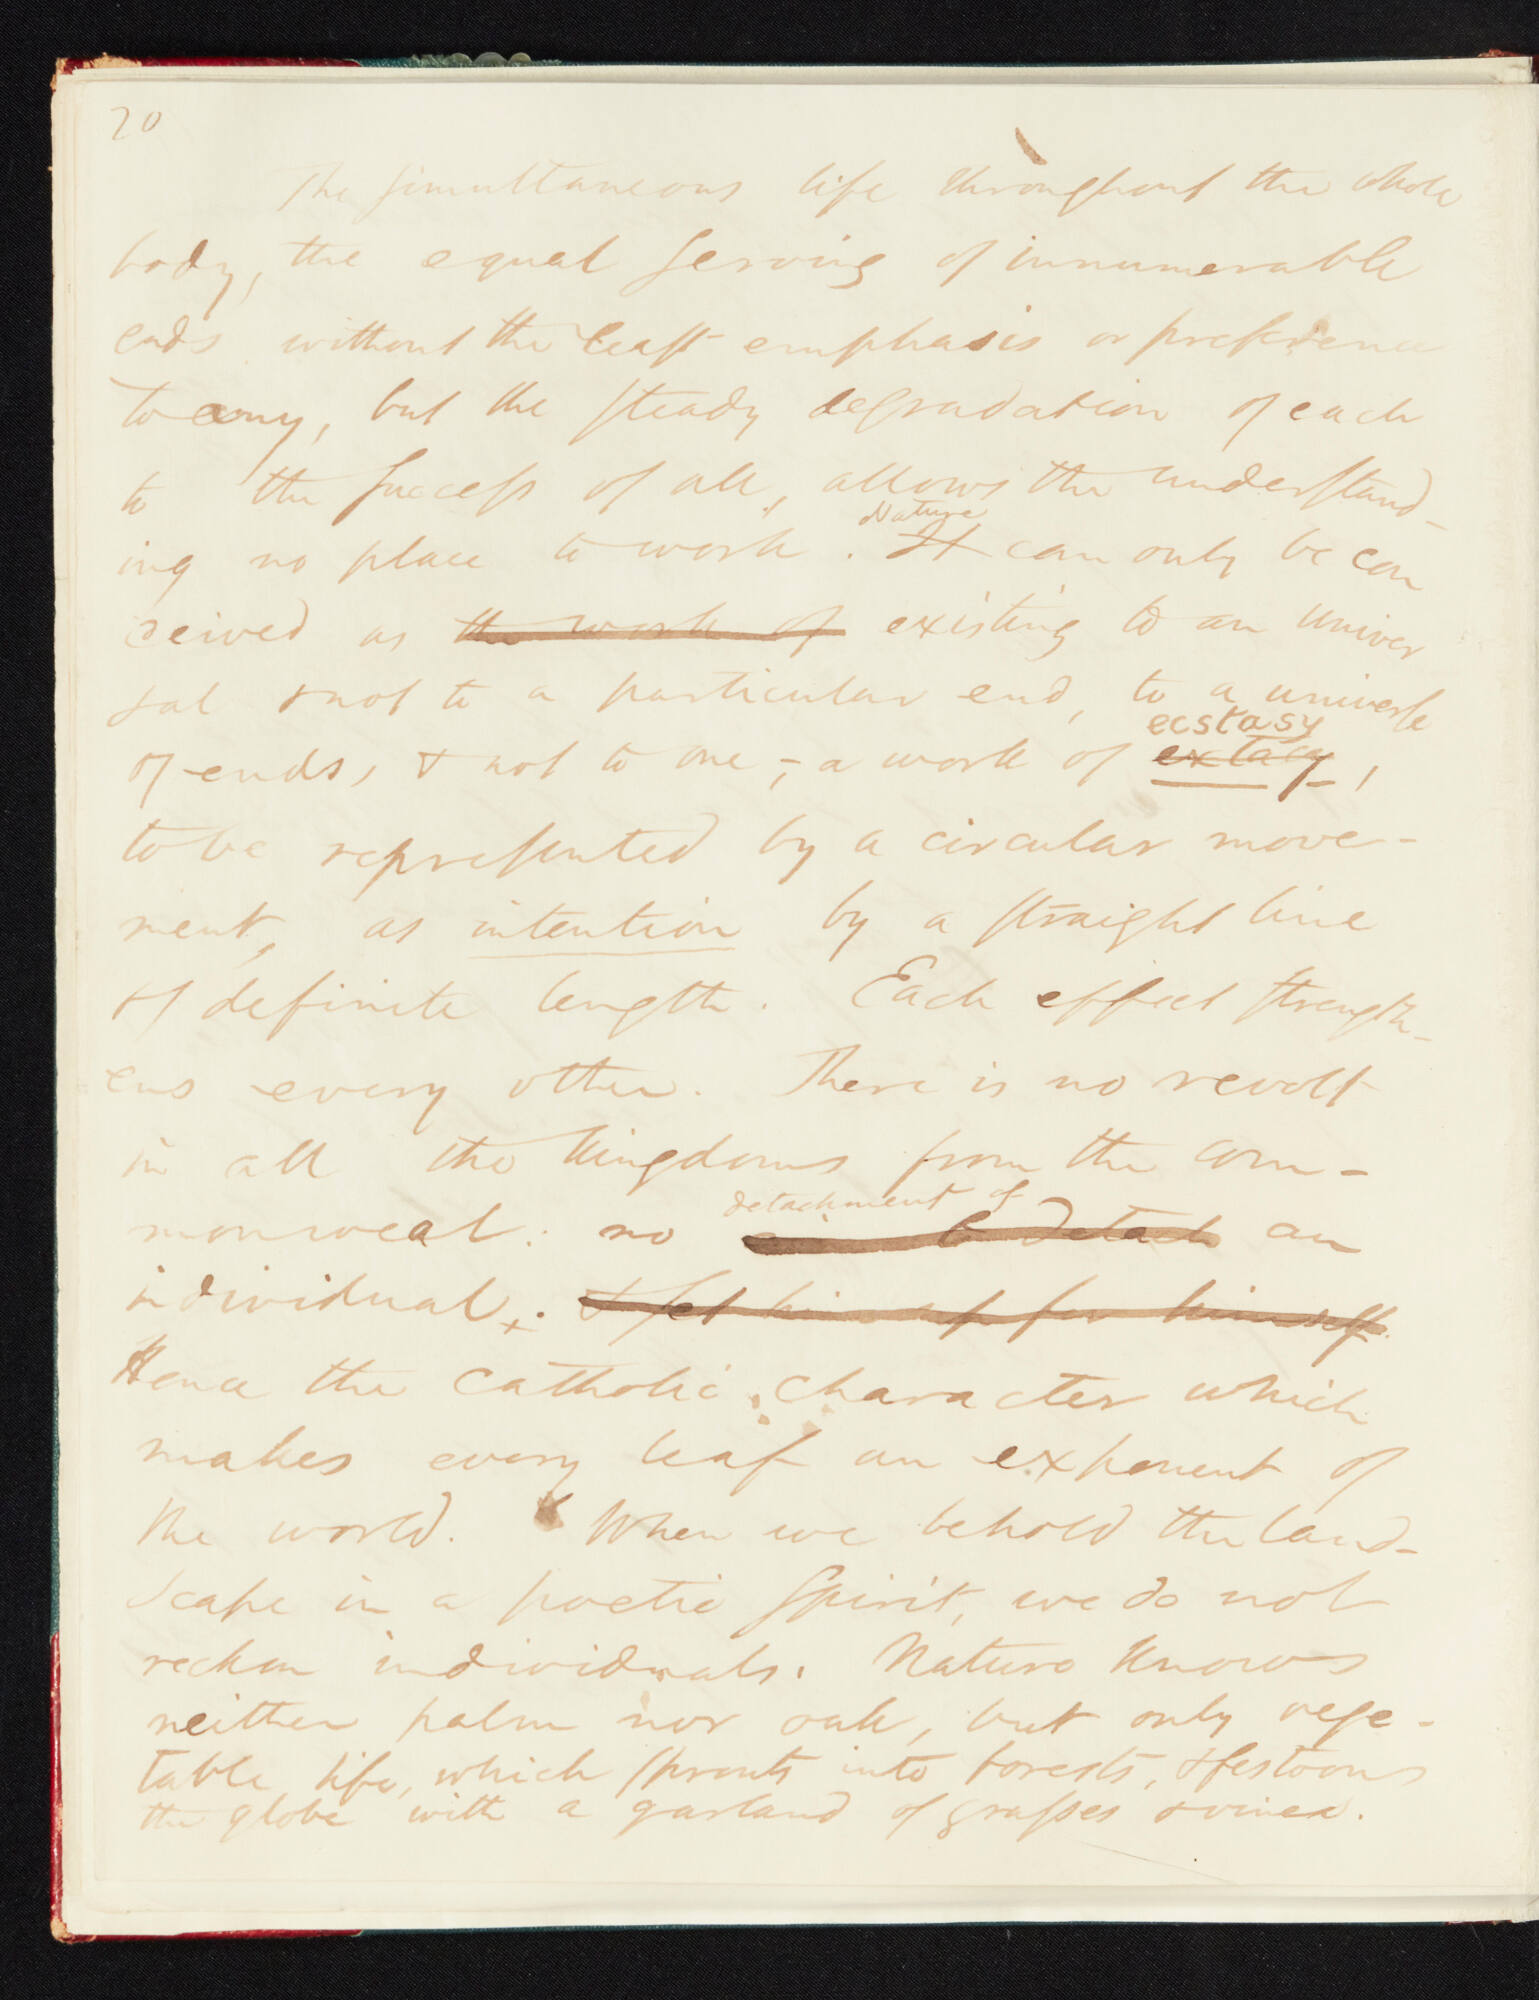 20
The simultaneous life throughout the whole
body, the equal serving of innumerable
ends without the least emphasis or preference
to any, but the steady degradation of each
to the success of all, allows the understand-
ing no place to work. Nature It can only be con
ceived as the work of existing to an univer
sal & not to a particular end, to a universe
ecstasy
of ends, & not to one; – a work of extacy,
to be represented by a circular move-
ment, as intention by a straight line
of definite length. Each effect strength-
ens every other. There is no revolt
in all the kingdoms from the com-
detachment of
monweal: no to detach an
individual. & set him up for himself.
Hence the catholic character which
makes every leaf an exponent of
the world. When we behold the land-
scape in a poetic spirit, we do not
reckon individuals. Nature knows
neither palm nor oak, but only vege-
table life, which sprouts into forests, & festoons
the globe with a garland of grasses & vines.